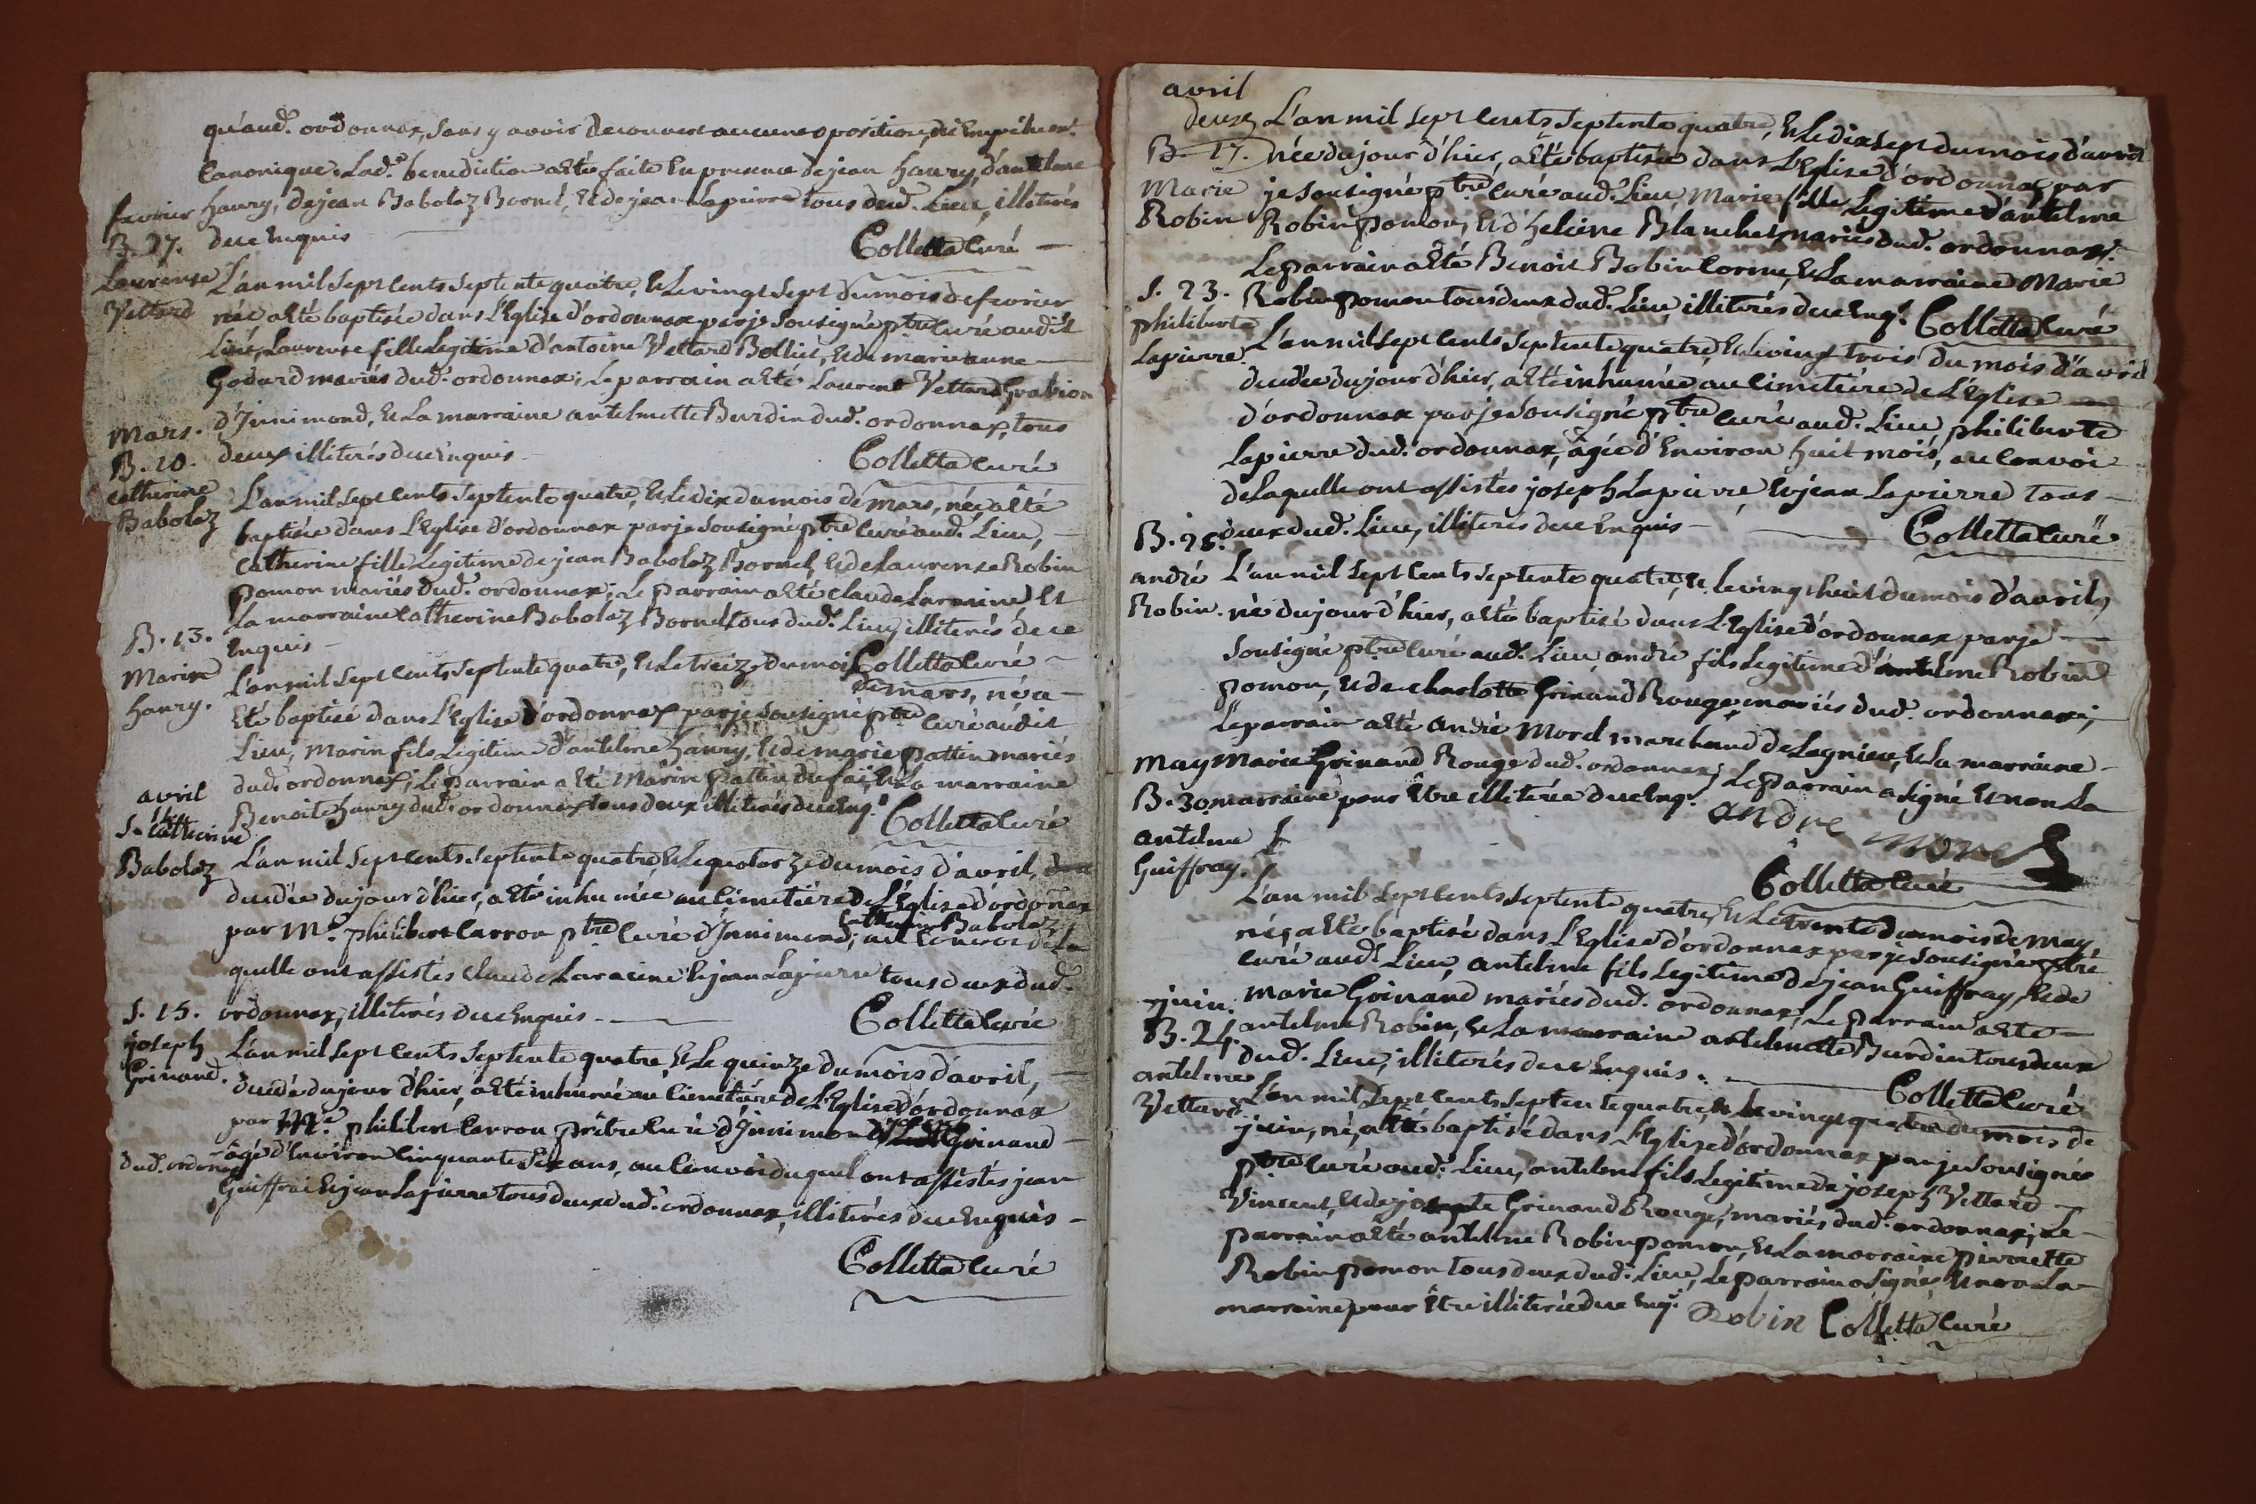 qu'aud. ordonnax, sans y avoir decouvert aucune oposition, ni Empêchemt.
Canonique. Lad. benediction a Eté faite En presence de jean haury, d'antelme
fevrier haury, de jean Babolaz Bornet, Et de jean Lapierre tous dud. Lieu, illiterés
B. 27. de ce Enquis
Colletta Curé
Laurense L'an mil sept Cents septente quatre, Et Le vingt sept du mois de fevrier
Vettard née a Eté baptisée dans L'Eglise d'ordonnax par je sousigné ptre Curé audit
Lieu, Laurense fille Legitime d'antoine Vettard Bolliet, Et de marie anne
Godard mariés dud. ordonnax; Le parrain a Eté Laurent Vettard Grabion
d'Innimond, Et La marraine antelmette Burdin dud. ordonnax, tous
mars.
B. 10. deux illiterés de ce Enquis
Colletta Curé
Catherine
Babolaz
L'an mil sept Cents septente quatre, Et Le dix du mois de mars, née a Eté
baptisée dans L'Eglise d'ordonnax par je sousigné ptre Curé aud. Lieu,
Catherine fille Legitime de jean Babolaz Bornet, Et de Laurense Robin
pomon mariés dud. ordonnax; Le parrain a Eté claude Laracine Et
La marraine Catherine Babolaz Bornet tous dud. Lieu illiterés de ce
B. 13. Enquis
Colletta Curé
Marin L'an mil sept Cents septente quatre, Et Le treize du mois
haury. de mars, né a
Eté baptisé dans L'Eglise d'ordonnax par je sousigné ptre Curé audit
Lieu, Marin fils Legitime d'antelme haury, Et de marie pattin mariés
dud. ordonnax; Le parrain a Eté Marin pattin du fai, Et La marraine
avril
Benoite haury dud. ordonnax tous deux illiterés de ce Enq.
Colletta Curé
S. 14
Catherine
Babolaz L'an mil sept Cents septente quatre, Et Le quatorze du mois d'avril,
decedée du jour d'hier, a Eté inhumée au Cimetière de L'Eglise d'ordonnax
Catherine Babolaz
par Mre. philibert Carron ptre Curé d'Innimond, au Convoi de La
quelle ont assistés claude Laracine Et jean Lapierre tous deux dud.
S. 15. ordonnax, illiterés de ce Enquis
Colletta Curé
joseph L'an mil sept Cents septente quatre, Et Le quinze du mois d'avril,
Grinand. decedé du jour d'hier, a Eté inhumé au Cimetière de L'Eglise d'ordonnax
par Mre. philibert Carron prêtre Curé d'Innimond, Grinand
dud. ordonax âgé d'Environ Cinquante six ans, au Convoi duquel ont assistés jean
Guiffrai Et jean Lapierre tous deux dud. ordonnax, illiterés de ce Enquis
Colletta Curé
avril
deux L'an mil sept Cents septente quatre, Et Le dix sept du mois d'avril
B. 17. née du jour d'hier, a Eté baptisée dans L'Eglise d'ordonnax par
Marie je sousigné ptre. Curé aud. Lieu Marie fille Legitime d'antelme
Robin Robin pomon, Et d'heleine Blanchet mariés dud. ordonnax.
Le parrain a Eté Benoit Robin Cornu, Et La marraine Marie
S. 23. Robin pomon tous deux dud. Lieu, illiterés de ce Enq. Colletta Curé
philiberte
Lapierre. L'an mil sept Cents septente quatre, Et Le vingt trois du mois d'avril
decedée du jour d'hier, a Eté inhumée au Cimetière de L'Eglise
d'ordonnax par je sousigné ptre Curé aud. Lieu, philiberte
Lapierre dud. ordonnax, âgée d'Environ huit mois, au Convoi
de Laquelle ont assistés joseph Lapierre Et jean Lapierre tous
deux dud. Lieu, illiterés de ce Enquis
Colletta Curé
B. 28.
andré L'an mil sept Cents septente quatre, Et Le vingt huit du mois d'avril,
Robin. né du jour d'hier, a Eté baptisé dans L'Eglise d'ordonnax par je
sousigné ptre Curé aud. Lieu, andré fils Legitime d'antelme Robin
pomon, Et de charlotte Grinand Rouge, mariés dud. ordonnax;
Le parrain a Eté andré Morel marchand de Lagnieu, Et La marraine
may Marie Grinand Rouge dud. ordonnax; Le parrain a signé Et non La
B. 30. marraine pour Etre illiterée de ce Enq.
andre morel
antelme
Guiffray.
Colletta Curé
L'an mil sept Cents septente quatre, Et Le trente du mois de may
né, a Eté baptisé dans L'Eglise d'ordonnax par je sousigné ptre
Curé aud. Lieu, antelme fils Legitime de jean Guiffray, Et de
juin. marie Grinand mariés dud. ordonnax, Le parrain a Eté
B. 24. antelme Robin, Et La marraine antelmette Burdin tous deux
dud. Lieu, illiterés de ce Enquis.
Colletta Curé
antelme
Vettard L'an mil sept Cents septente quatre, Et Le vingt quatre du mois de
juin, né, a Eté baptisé dans L'Eglise d'ordonnax par je sousigné
ptre Curé aud. Lieu, antelme fils Legitime de joseph Vettard
Vincent, Et de josepte Grinand Rouge, mariés dud. ordonnax; Le
parrain a Eté antelme Robin pomon, Et La marraine pierrette
Robin pomon tous deux dud. Lieu, Le parrain a signé, Et non La
marraine pour Etre illiterée de ce Enq. Robin Colletta Curé